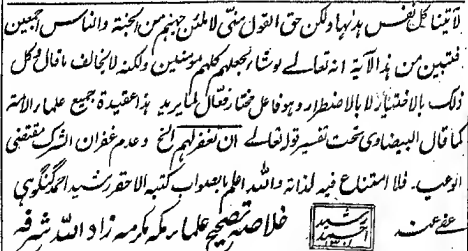 لآتینا کل نفس ہداہا ولکن حق القول منی لأملئن جہنم من الجنۃ والناس اجمعین
فتبین من ہذہ الآیۃ انہ تعالے لوشاء لجعلہم کلہم مؤمنین ولکنہ لایخالف ماقال وکل
ذلک بالاختیار لا بالاضطرار وہو فاعل مختار فعّال لما یرید ہذا عقیدۃ جمیع علماء الامۃ
کما قال البیضاوی تحت تفسیر قولہ تعالے ان تغفر لہم الخ وعدم غفران الشرک مقتضی
الوعید۔ فلا امتناع فیہ لذاتہ واللہ اعلم بالصواب کتبہ الاحقر رشید احمد گنگوہی
عفے عنہ رشید احمد خلاصہ تصحیح علماء مکہ مکرمہ زاد اللہ شرفہ